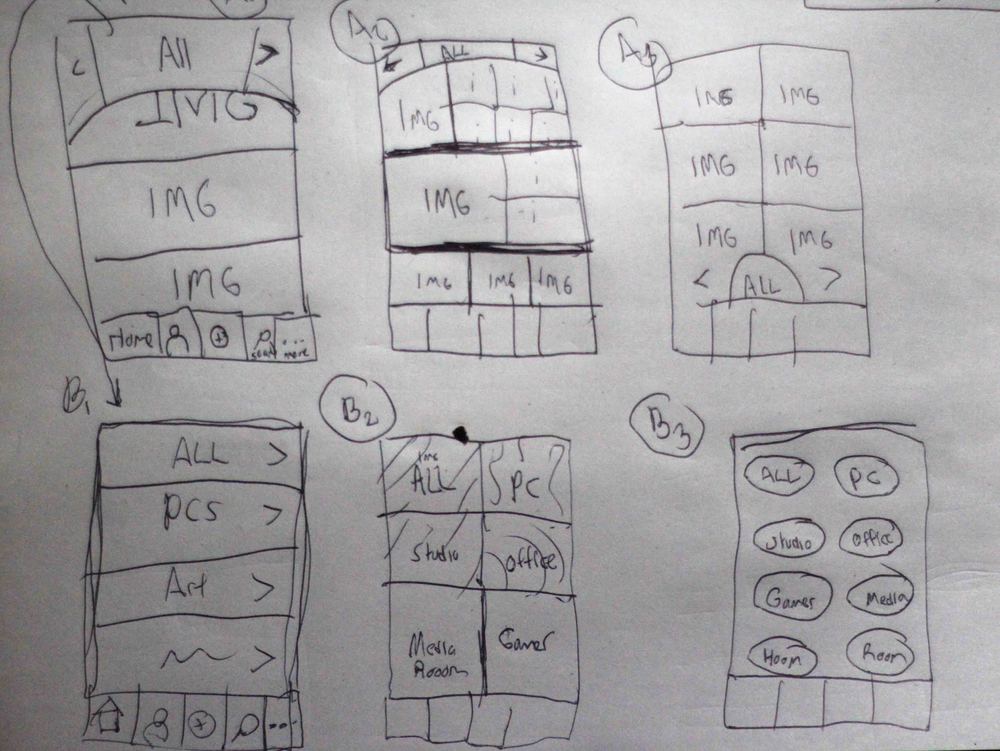 A2
A3
< All >
IMG
IMG
IMG
Home
search
... more
ALL
IMG
i i i
i i
IMG
i
i
IMG IMG IMG
IMG IMG
IMG IMG
IMG IMG
< ALL >
B1
ALL >
PCS >
Art >
>
...
B2
ALL PC
Studio Office
Media Rooom
Gamer
B3
ALL PC
Studio Office
Gamer Media
Room